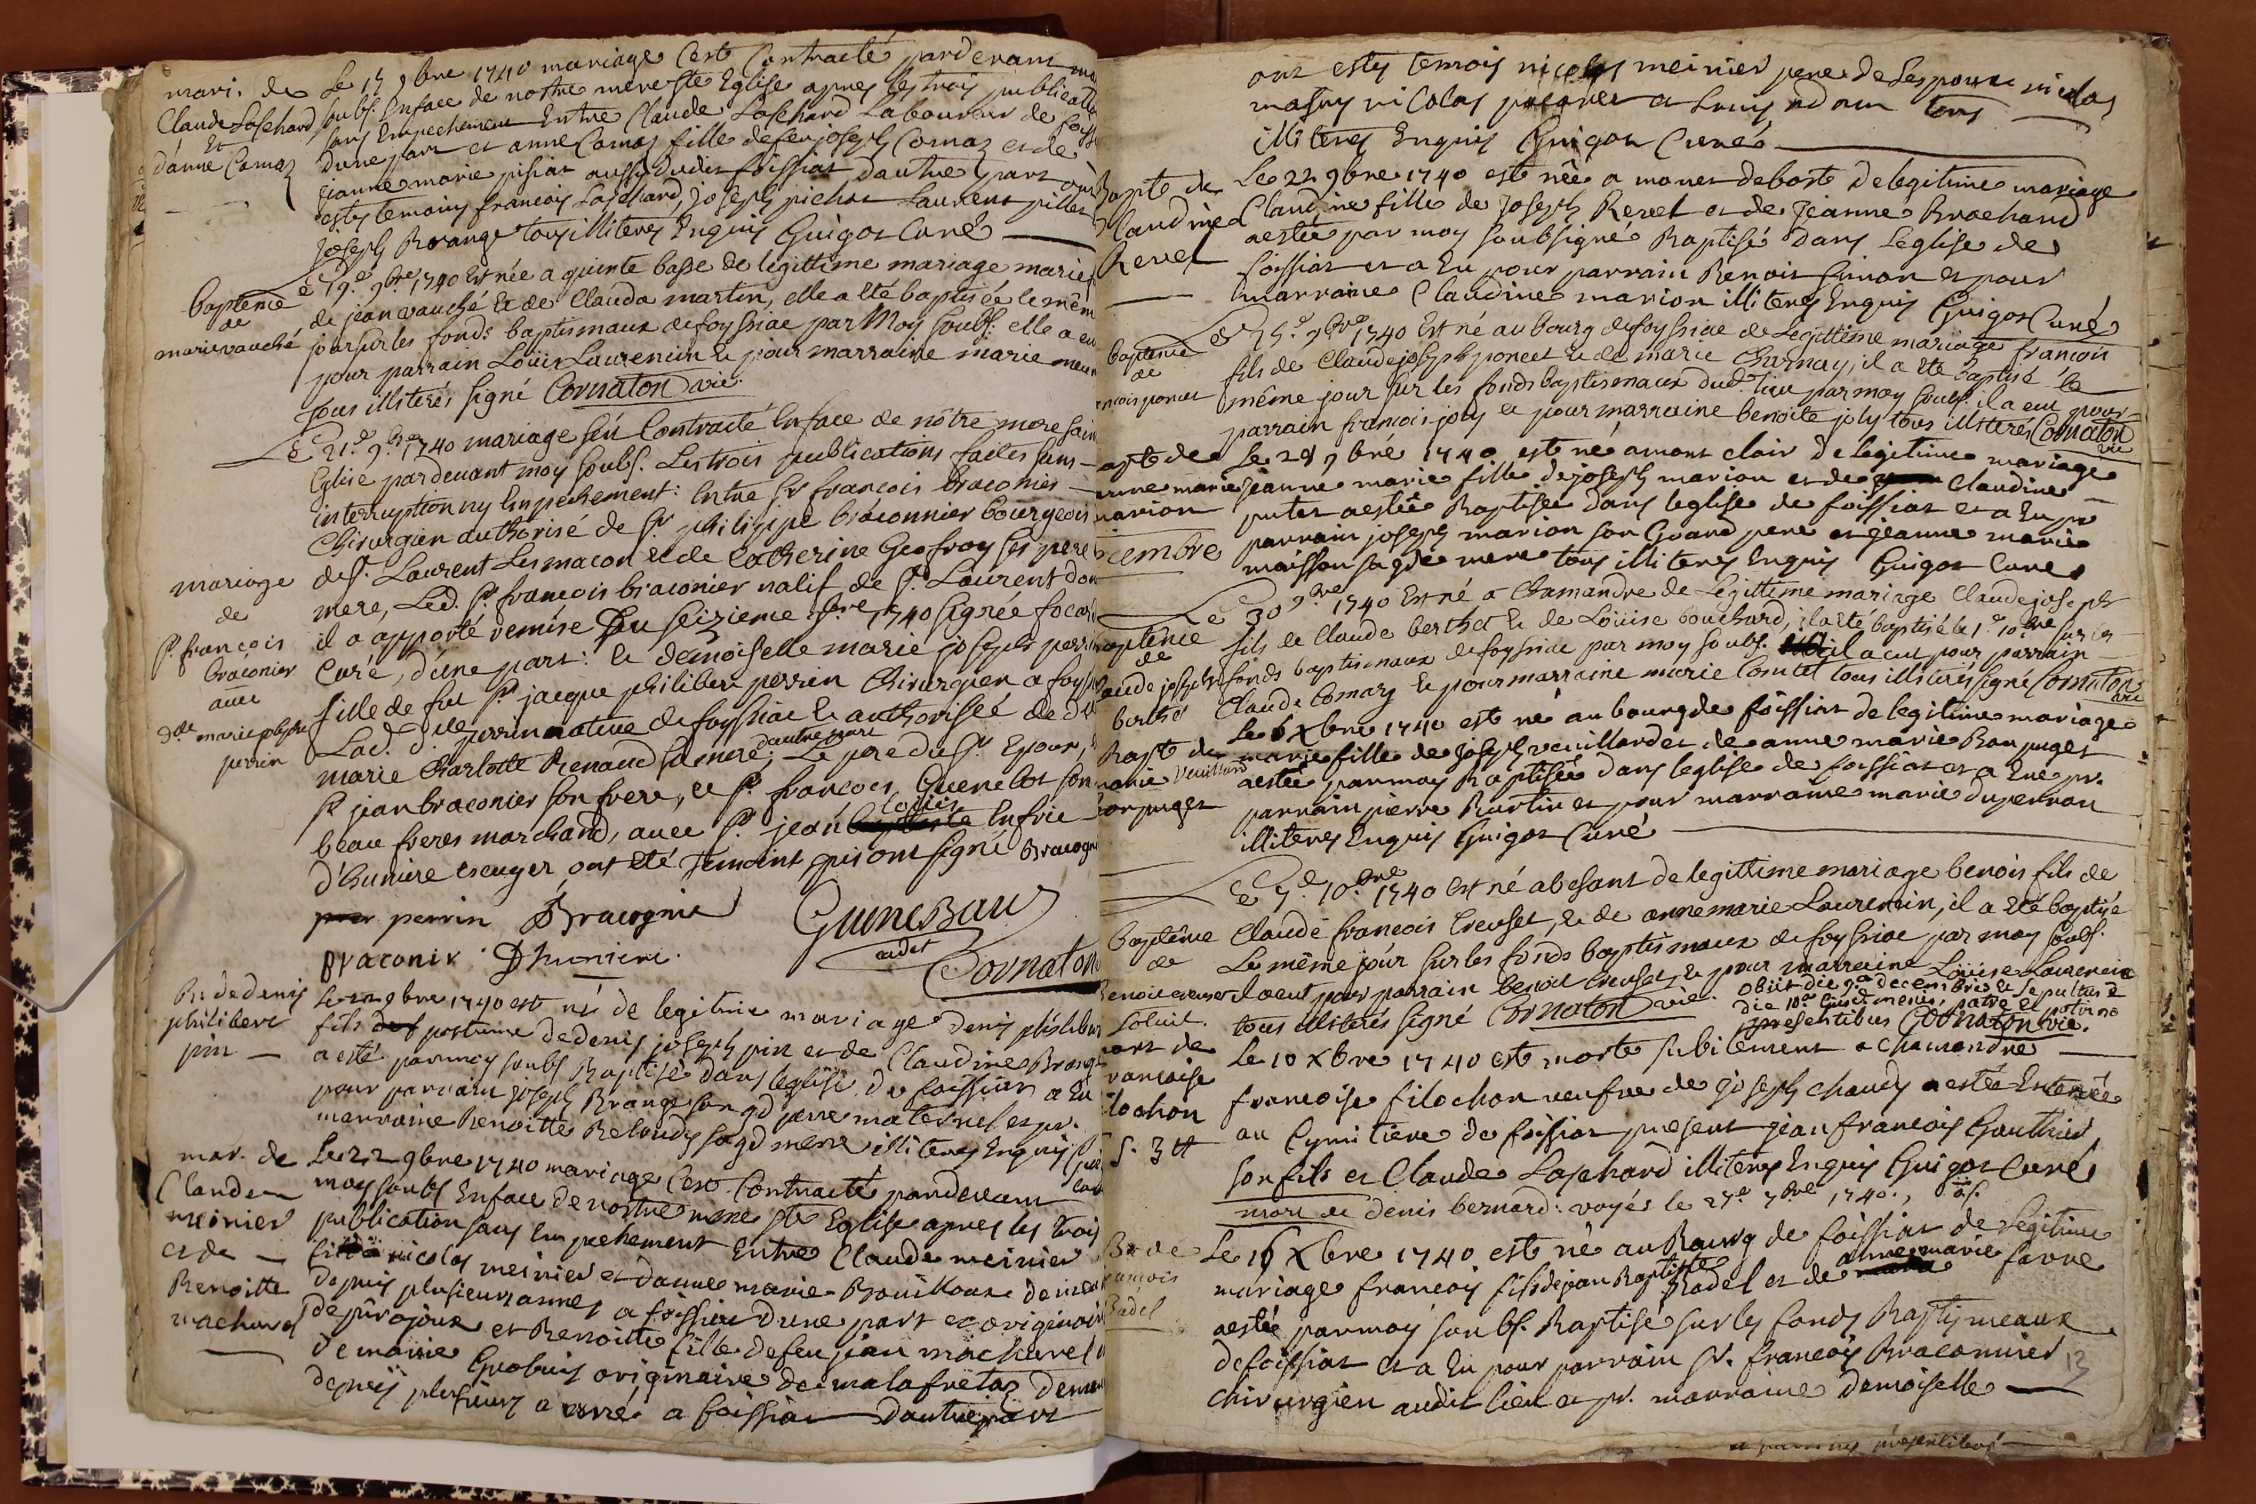 mari. de
Claude Lassehard
Et
d'anne Comaz
Le 15 9bre 1740 mariage C'est Contracté pardevant
soubs. Enface de nostre mere Ste Eglise apres les trois publications
sans Empechement Entre Claude Lassehard Laboureur de
d'une part et anne Comaz fille defeu joseph Comaz et de
jeanne marie pisiat aussy dudit foissiat d'autre part ont
estes temoins francois Lassehard, joseph pichat Laurent pillet
joseph Borange tous illiteres Enquis Guigot Curé
baptême
de
marie vauché
Le 19.e 9bre 1740 Est née a quinte basse de legittime mariage marie
de jean vauché Et de Clauda martin, elle a Eté baptisée le mem
jour sur les fonds baptismaux de foyssiac par Moy soubs. elle a eu
pour parrain Loüis Laurencin Et pour marraine marie
tous illiterés signé Cornaton vic.
mariage
de
Sr. françois
braconier
avec
dlle marie josephe
perrin
Le 21.e 9bre 1740 mariage s'est Contracté En face de nôtre mere sain
Eglise pardevant moy soubs. Les trois publications faites sans
interruption ny Empechement: Entre Sr francois braconier
Chirurgien authorisé de Sr philippe braconnier bourgeois
de St. Laurent Les macon Et de Catherine Geofroy ses pere
mere, Led. Sr. francois braconier natif de St. Laurent don
il a apporté remise Du seizieme 9bre 1740 signée
Curé, d'une part: Et demoiselle marie joseph perrin
fille de feu Sr jacque philibert perrin Chirurgien a foyss
Lad. dlle perrin native de foyssiac Et authorisée de d
marie Charlotte Renaud sa mere, d'autre part Le pere du Sr Epoux,
Sr jean braconier son frere, et Sr. francois Guenebot son
beau freres marchand, avec Sr. jean Louis Enfrie
d'huniere ecuyer ont été Temoins qui ont signé Bracogni
perrin Bracognie Guinebau
cadet
braconir Dhuniere. Cornaton
B. de denis
philibert
pin
Le 22 9bre 1740 est né de legitime mariage denis philibert
fils postume de denis joseph pin et de Claudine Brange
a esté par moy soubs Baptisé dans leglise de foissiat a Eu
pour parrain joseph Brange son gd pere maternel et pr.
marraine Benoitte Relandy sa gd mere illiteres Enquis
mar. de
Claude
meinier
et de
Benoitte
machurel
Le 22 9bre 1740 mariage C'est Contracté pardevant
moy soubs Enface de nostre mere Ste Eglise apres les trois
publication sans Empechement Entre Claude meinier
fils nicolas meinier et d'anne marie Bouilloux demeu
depuis plusieurs annes a foissiat D'une part et originaire
de pirajoux et Benoitte fille de feu jean machurel
de marie Guobuis originaire de malafretaz demeu
depuis plusieurs a foissiat D'autre part
ont estes temois nicolas meinier pere de Lespoux nicolas
mathy nicolas et Louis adam tous
illiteres Enquis Guigot Curé
Bapte de
Claudine
Revel
Le 22 9bre 1740 est née a monet debost de legitime mariage
Claudine fille de Joseph Revel et de Jeanne Brochand
a estée par moy soubsigné Baptisé dans Leglise de
foissiat et a Eu pour parrain Benoit Guinon et pour
marraine Claudine marion illiteres Enquis Guigot Curé
baptême
de
francois poncet
Le 25.e 9bre 1740 Est né au bourg de foyssiac de Legittime mariage francois
fils de Claude joseph poncet Et de marie Charnay, il a Eté baptisé le
même jour sur les fonds baptismaux dud. lieu par moy soubs. il a eu pour
parrain francois joly et pour marraine benoite joly tous illiterés Cornaton
vic
Bapte de
jeanne marie
marion
Le 28 9bre 1740 est né a mont clair de legitime mariage
jeanne marie fille de joseph marion et de Claudine
putet a estée Baptisée dans leglise de foissiat et a Eu pr
parrain joseph marion son Grand pere et jeanne marie
maisson sa gde mere tous illiteres Enquis Guigot Cure
Decembre
baptême
de
Claude joseph
berthet
Le 30 9bre 1740 Est né a Chamandre de Legittime mariage Claude joseph
fils de Claude berthet Et de Loüise bouchard, il a Eté baptisé le 1.e 10.bre sur les
fonds baptismaux de foyssiac par moy soubs. il a eu pour parrain
Claude Comaz Et pour marraine marie Comtet tous illiterés signé Cornaton
vic
Bapt de
marie veuillard
bonpuget
Le 6 Xbre 1740 est né au bourg de foissiat de legitime mariage
marie fille de Joseph veuillard et de anne marie Bonpuget
a estée par moy Baptisée dans leglise de foissiat et a Eue pr.
parrain pierre Burtin et pour marraine marie duperron
illiteres Enquis Guigot Curé
baptême
de
Benoit creuset
Le 7.e 10.bre 1740 Est né a besant de legittime mariage benois fils de
Claude francois Creuset, Et de anne marie Laurencin, il a Eté baptisé
Le même jour sur les fonds baptismaux de foyssiac par moy soubs.
il a eut pour parrain benoit Creuset Et pour marraine Loüise Laurencin
tous illiterés signé Cornaton vic. obiit die 9.a decembris et sepultus e
die 10.a ejusd. mensis, patre et patrino
presentibus Cornaton vic.
Soluit.
mort de
francoise
filochon
S. 3 tt
Le 10 Xbre 1740 est morte subitement a chamandre
francoise filochon veufve de joseph chaudy a estée Enterée
au Cymitiere de foissiat present jean francois Gauthier
son fils et Claude Lassehard illiteres Enquis Guigot Curé
mort de denis bernard: voyés le 27.e 7bre 1740.
B. de
francois
Badel
Le 16 Xbre 1740 est né au Bourg de foissiat de legitime
mariage francois fils de jean Baptiste Badel et de anne marie favre
a estée par moy soubs. Baptisé sur les fonds Baptismeaux
de foissiat et a Eu pour parrain Sr. francois Braconnier
chirurgien audit lieu et pr. marraine Demoiselle
13
presentibus